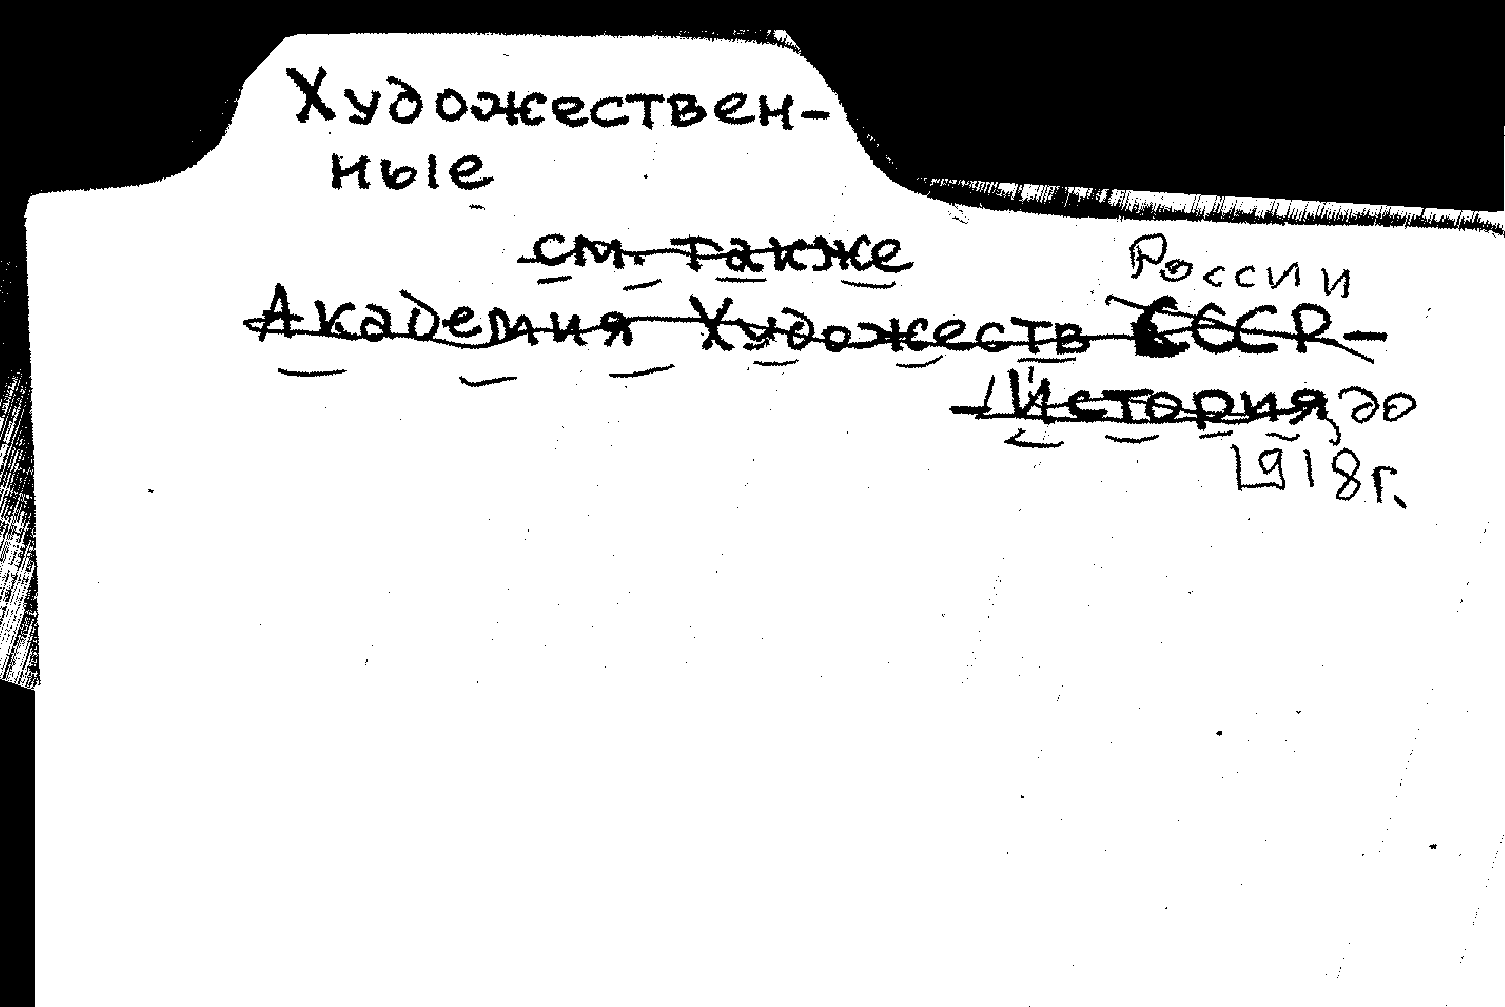 Художествен-
ные
см. также
России
Академия Художеств СССР -
- История до
1918 г.